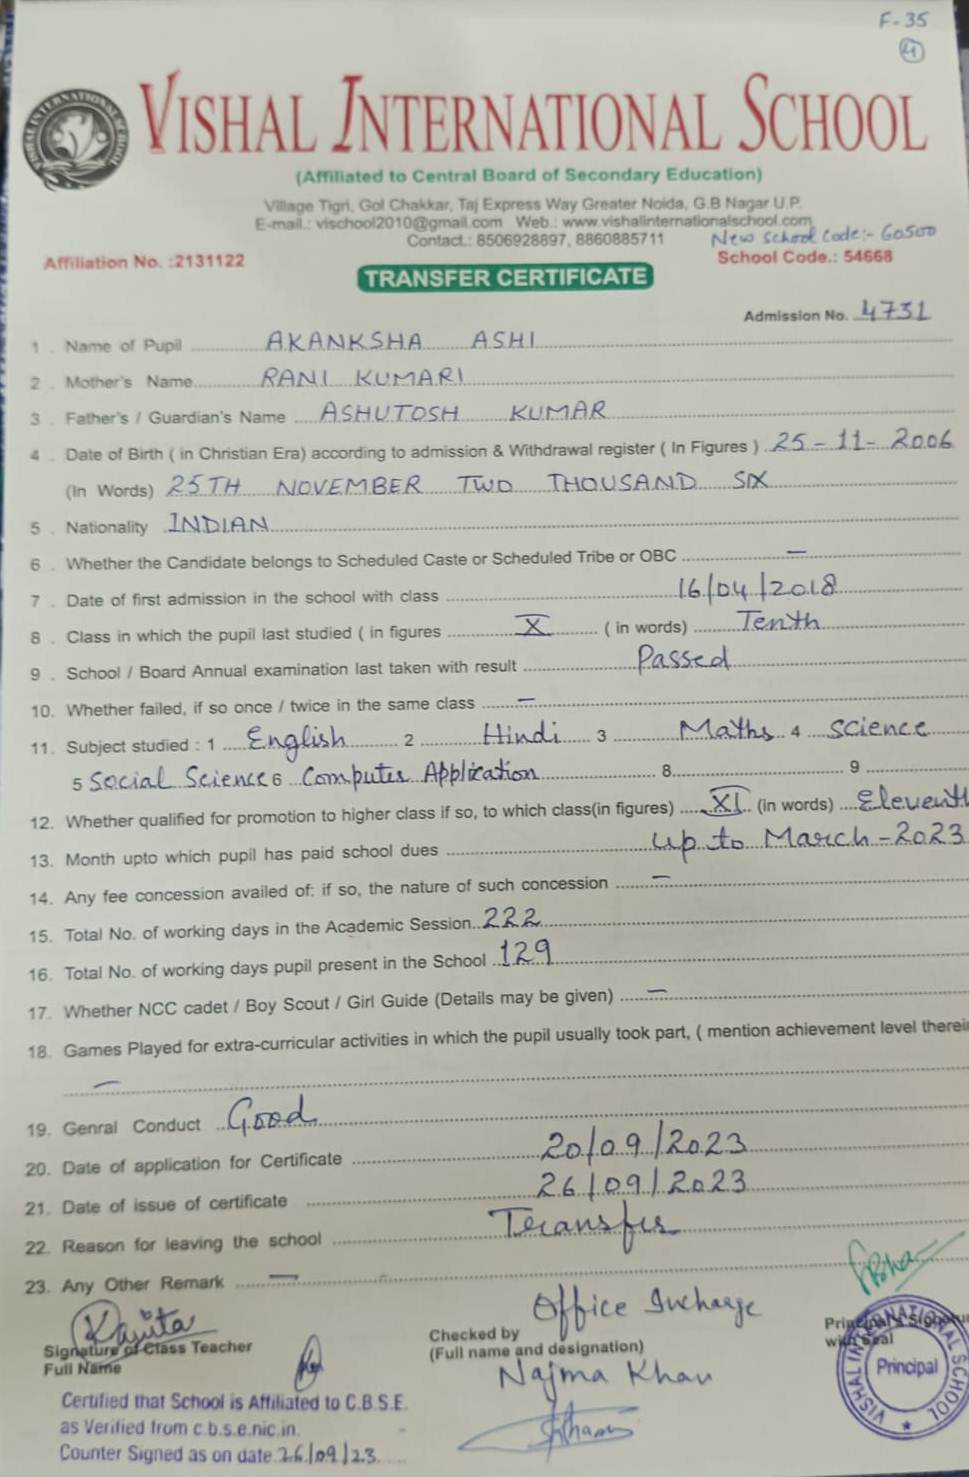 F-35
4
VISHAL INTERNATIONAL SCHOOL
VISHAL INTERNATIONAL SCHOOL
(Affiliated to Central Board of Secondary Education)
Village Tigri, Gol Chakkar, Taj Express Way Greater Noida, G.B Nagar U.P.
E-mail.: vischool2010@gmail.com Web.: www.vishalinternationalschool.com
Contact.: 8506928897, 8860885711 New School Code:- 60500
Affiliation No. :2131122 School Code.: 54668
TRANSFER CERTIFICATE
Admission No. 4731
1 . Name of Pupil AKANKSHA ASHI
2 . Mother's Name RANI KUMARI
3 . Father's / Guardian's Name ASHUTOSH KUMAR
4 . Date of Birth ( in Christian Era) according to admission & Withdrawal register ( In Figures ) 25-11-2006
(In Words) 25TH NOVEMBER TWO THOUSAND SIX
5 . Nationality INDIAN
6 . Whether the Candidate belongs to Scheduled Caste or Scheduled Tribe or OBC —
7 . Date of first admission in the school with class 16/04/2018
8 . Class in which the pupil last studied ( in figures X ( in words) Tenth
9 . School / Board Annual examination last taken with result Passed
10. Whether failed, if so once / twice in the same class —
11. Subject studied : 1 English 2 Hindi 3 Maths 4 Science
5 Social Science 6 Computer Application 8 9
12. Whether qualified for promotion to higher class if so, to which class(in figures) XI (in words) Eleventh
13. Month upto which pupil has paid school dues up to March-2023
14. Any fee concession availed of: if so, the nature of such concession —
15. Total No. of working days in the Academic Session 222
16. Total No. of working days pupil present in the School 129
17. Whether NCC cadet / Boy Scout / Girl Guide (Details may be given) —
18. Games Played for extra-curricular activities in which the pupil usually took part, ( mention achievement level therein
—
19. Genral Conduct Good
20. Date of application for Certificate 20/09/2023
21. Date of issue of certificate 26/09/2023
22. Reason for leaving the school Transfer
23. Any Other Remark —
Kavita
Signature of Class Teacher
Full Name
Office Incharge
Checked by
(Full name and designation)
Najma Khan
Principal's Signature
with Seal
VISHAL INTERNATIONAL SCHOOL
Principal
Certified that School is Affiliated to C.B.S.E.
as Verified from c.b.s.e.nic.in.
Counter Signed as on date 26/09/23